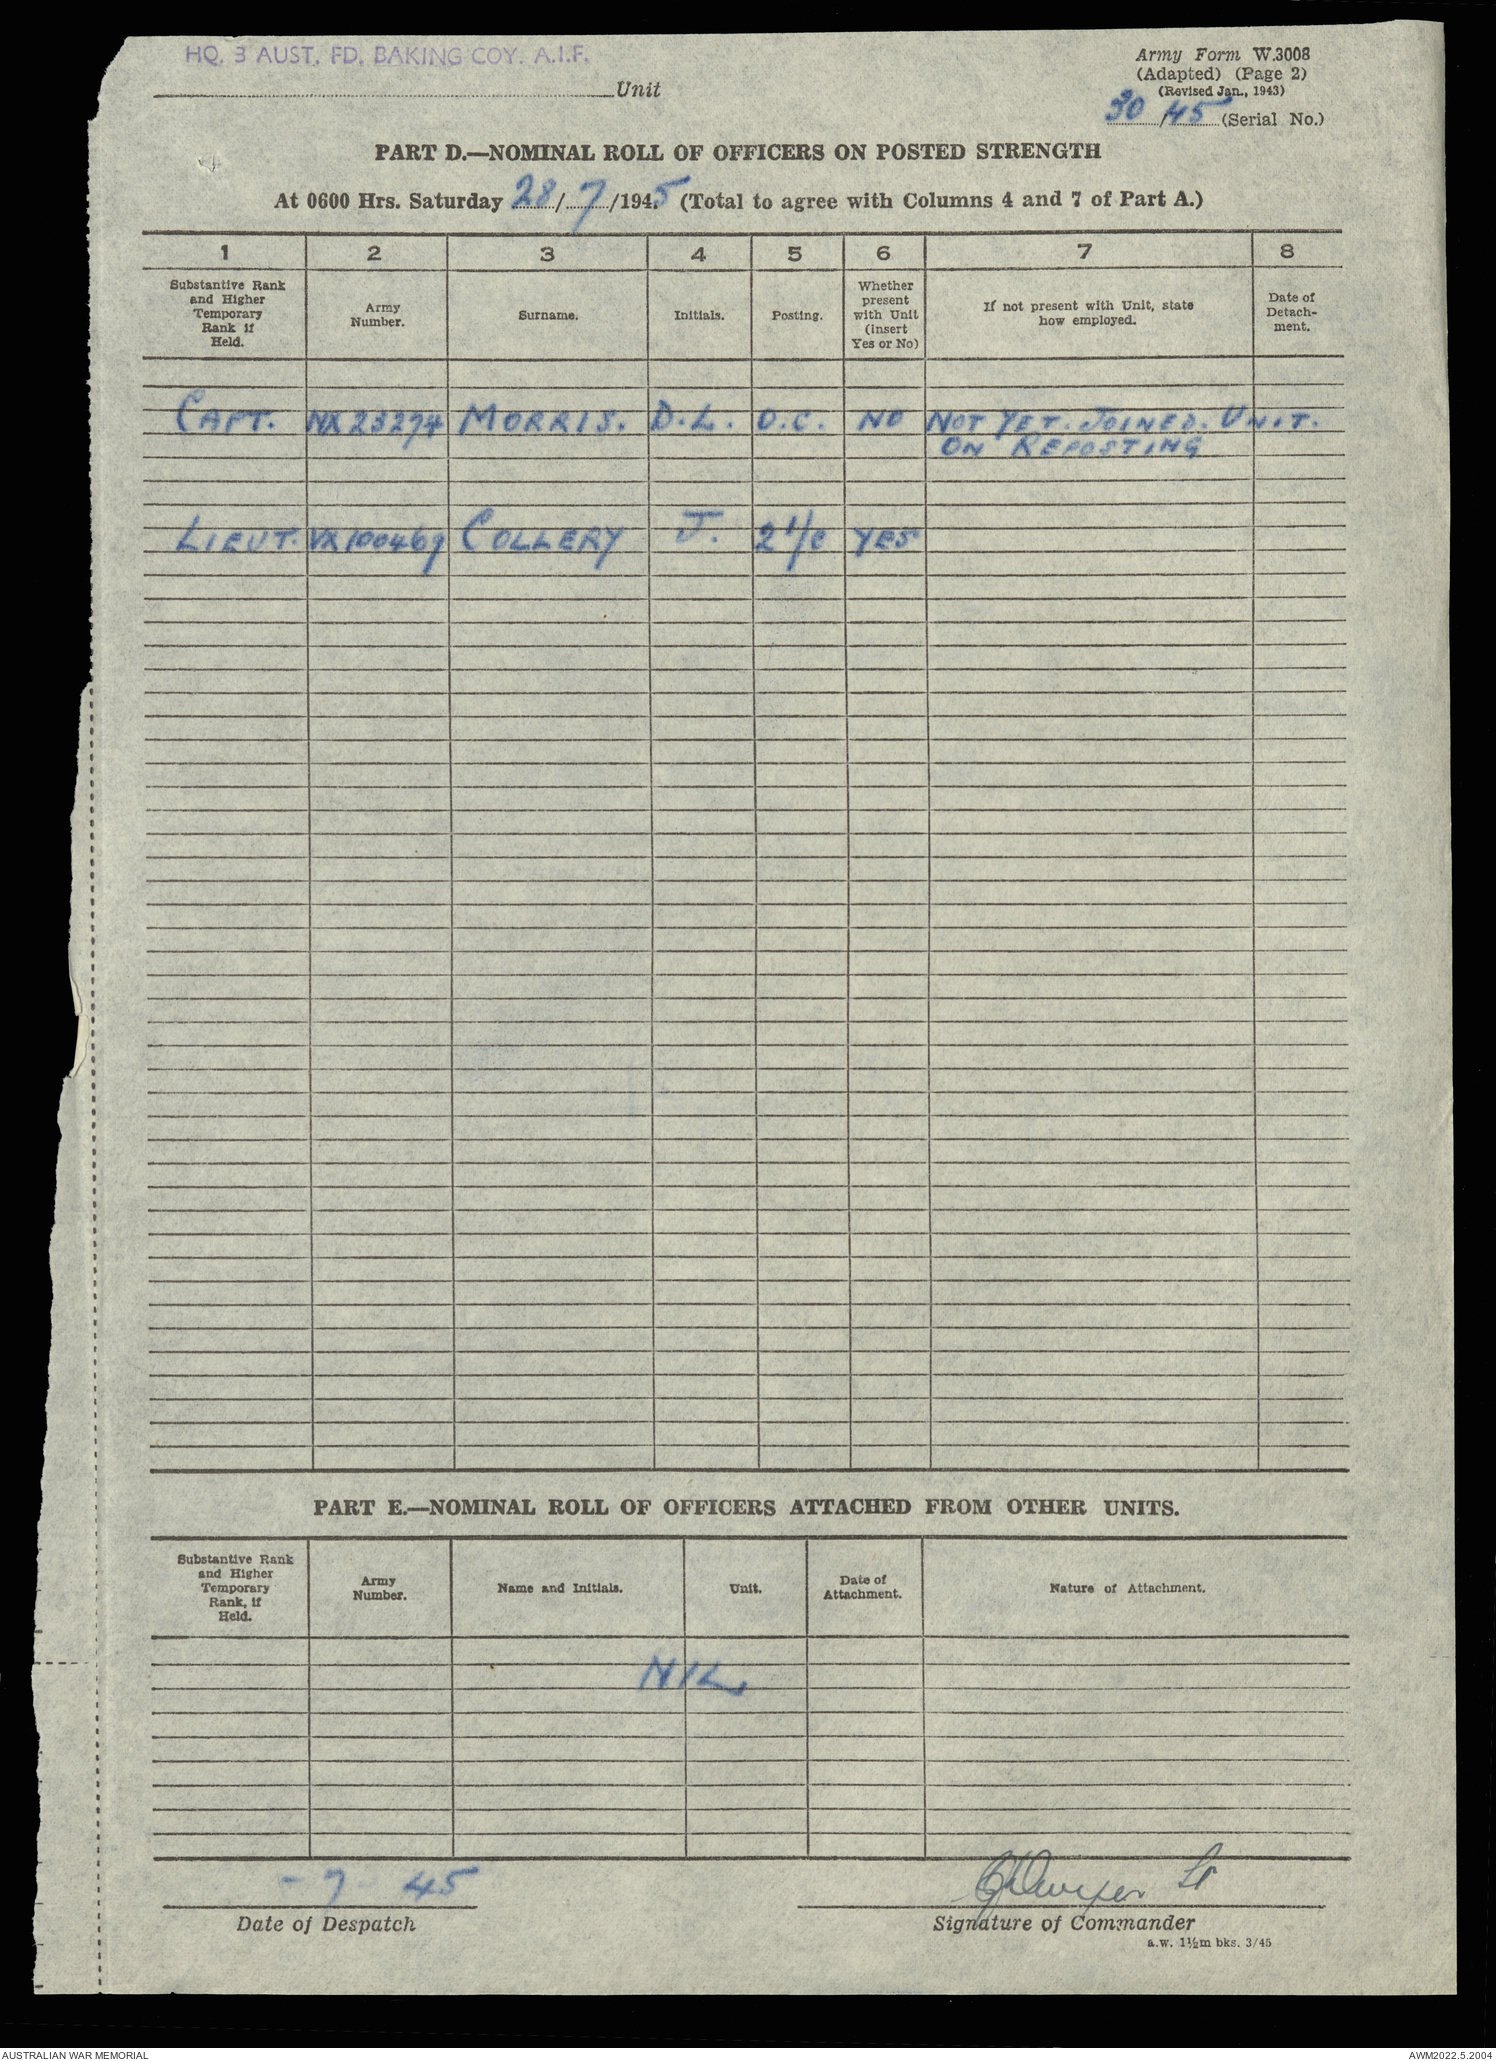 HQ. 3 AUST. FD. BAKING COY. A.I.F.
Unit
Army Form W.3008
(Adapted) (Page 2)
(Revised Jan., 1943)
30/45 (Serial No.)
PART D.—NOMINAL ROLL OF OFFICERS ON POSTED STRENGTH
At 0600 Hrs. Saturday 28/7/1945 (Total to agree with Columns 4 and 7 of Part A.)
1 2 3 4 5 6 7 8
Substantive Rank and Higher Temporary Rank if Held. Army Number. Surname. Initials. Posting. Whether present with Unit (insert Yes or No) If not present with Unit, state how employed. Date of Detach-ment.
CAPT. NX23274 MORRIS. D.L. O.C. NO NOT YET. JOINED. UNIT.
ON REPOSTING
LIEUT. VX100469 COLLERY J. 2 I/C YES
PART E.—NOMINAL ROLL OF OFFICERS ATTACHED FROM OTHER UNITS.
Substantive Rank and Higher Temporary Rank, if Held. Army Number. Name and Initials. Unit. Date of Attachment. Nature of Attachment.
NIL
- 7 - 45
Lt
Date of Despatch
Signature of Commander
a.w. 1½m bks. 3/45
AUSTRALIAN WAR MEMORIAL
AWM2022.5.2004